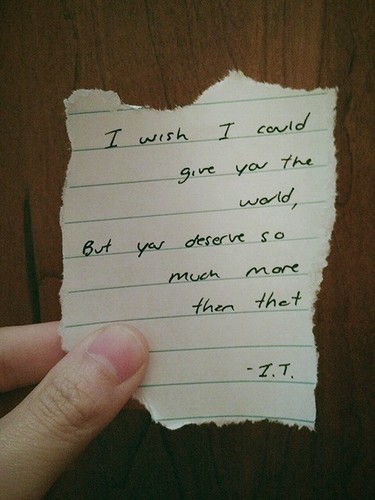 I wish I could
give you the
world,
But you deserve so
much more
then that
-I.T.